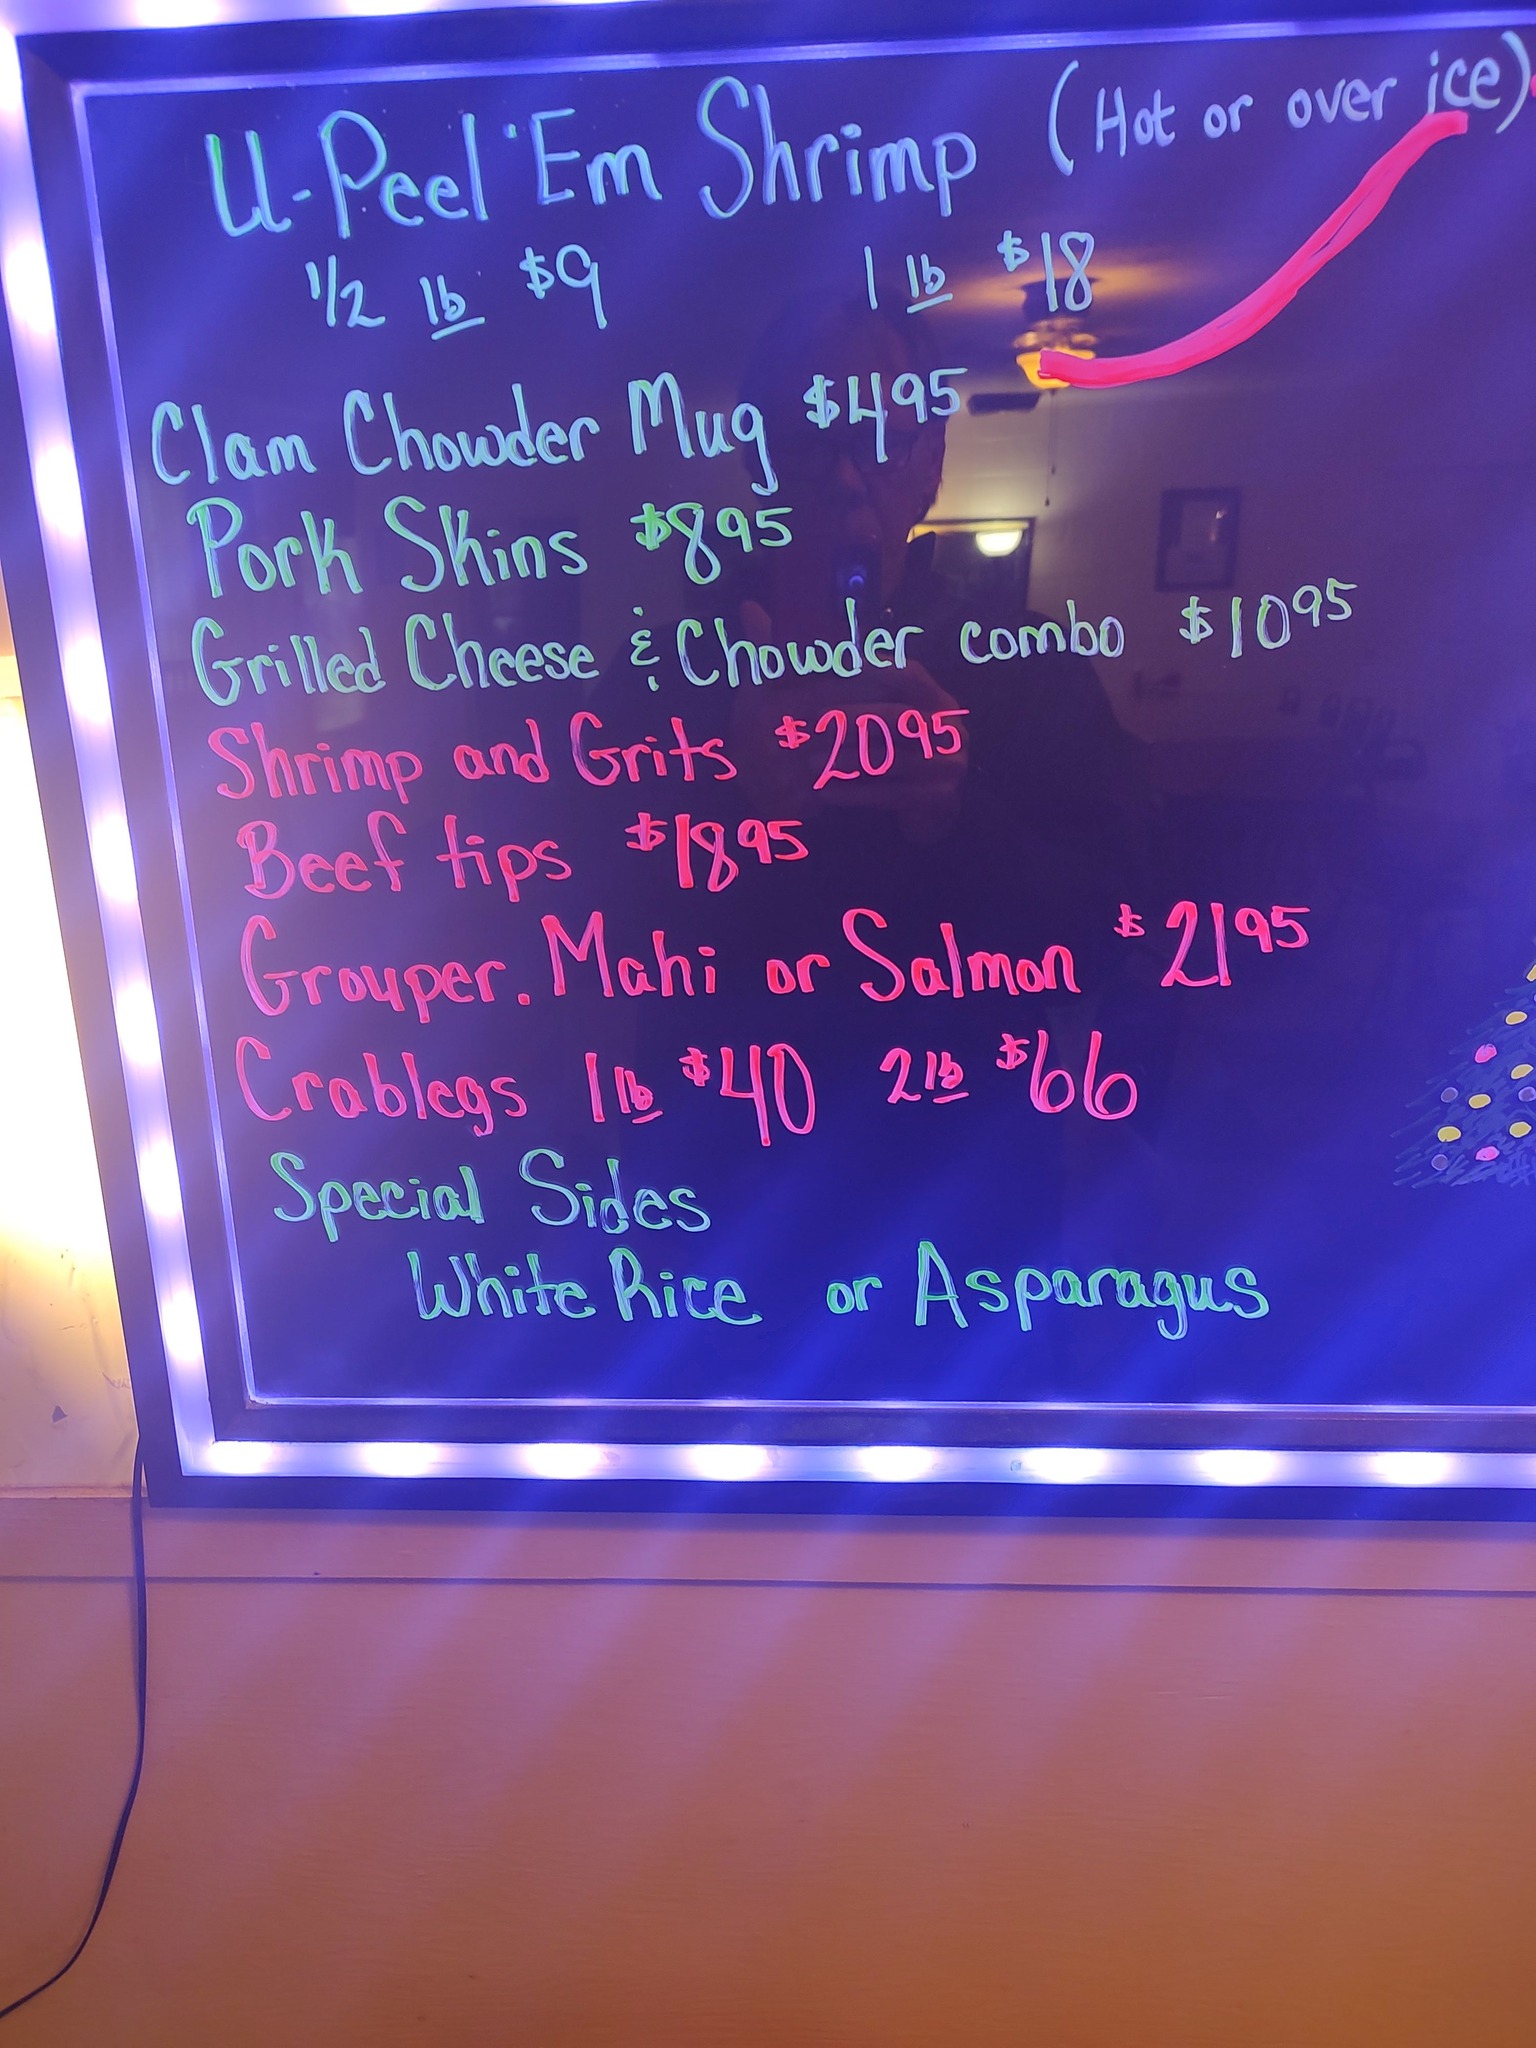 U-Peel 'Em Shrimp (Hot or over ice)
1/2 lb $9 1 lb $18
Clam Chowder Mug $4 95
Pork Skins $8 95
Grilled Cheese & Chowder combo $10 95
Shrimp and Grits $20 95
Beef tips $18 95
Grouper. Mahi or Salmon $21 95
Crablegs 1 lb $40 2 lb $66
Special Sides
White Rice or Asparagus